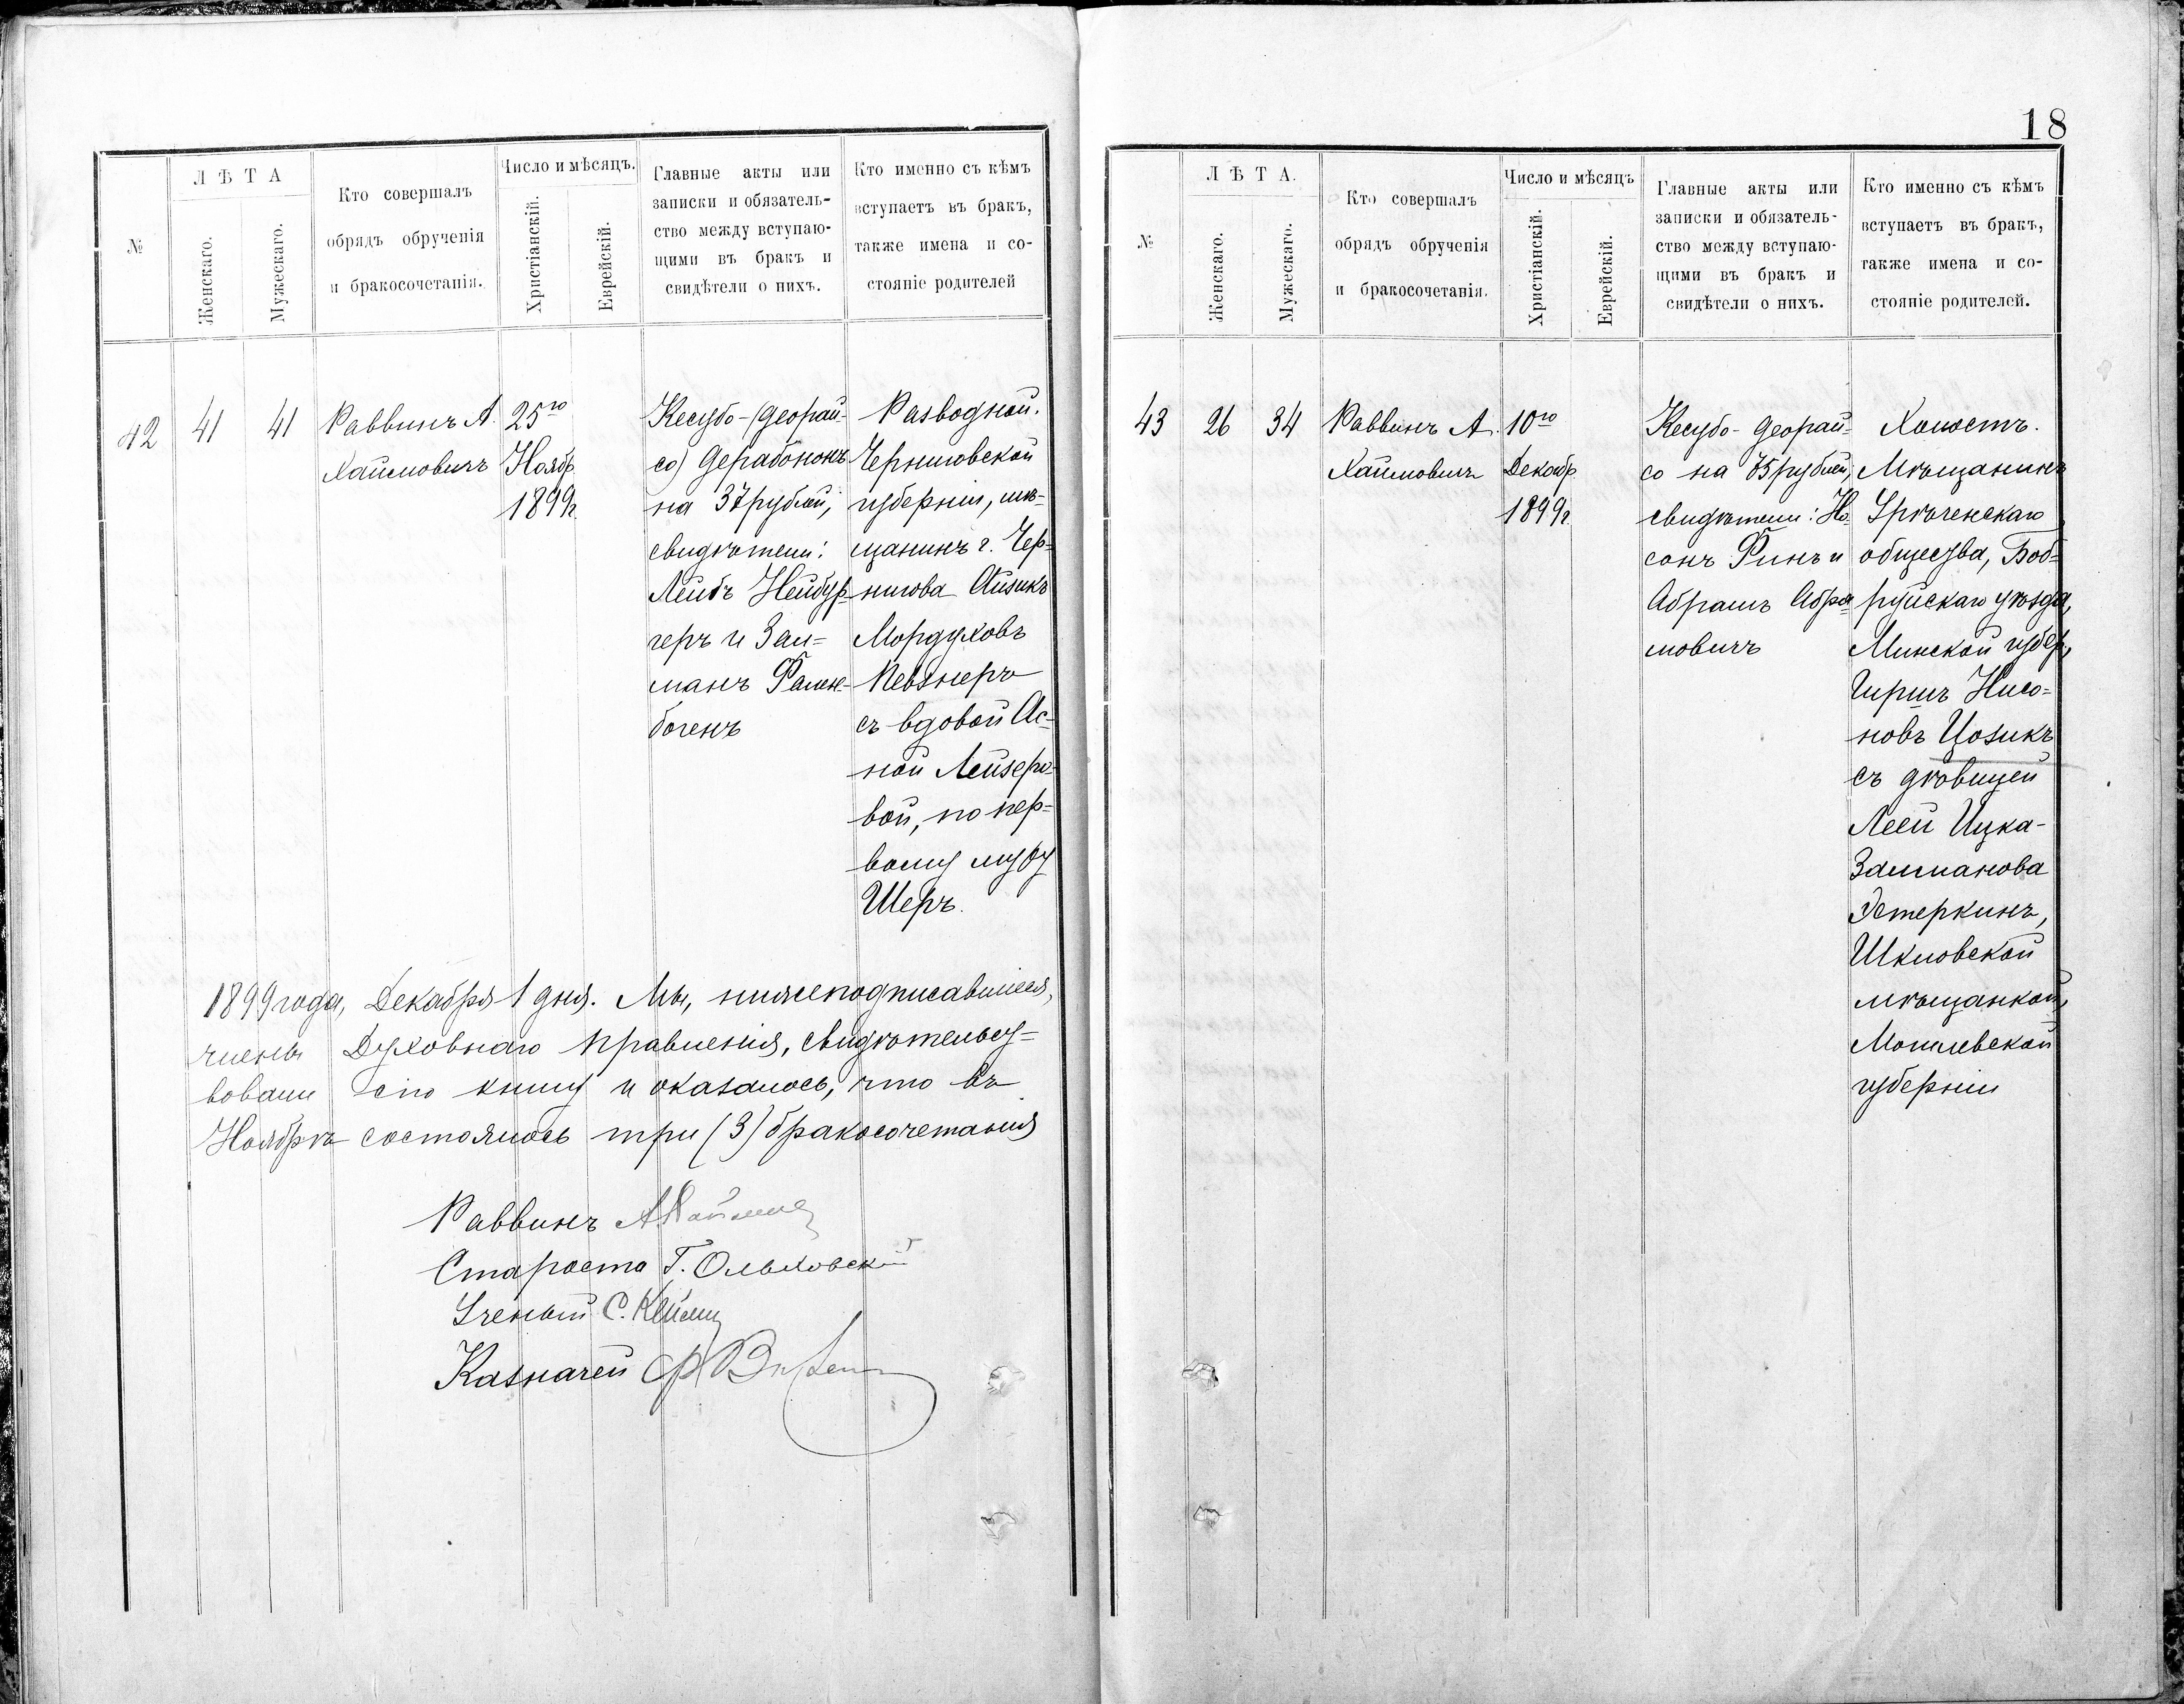 18
№
Л Ѣ Т А
Женскаго.
Мужескаго.
Кто совершалъ
обрядъ обрученія
и бракосочетанія.
Число и мѣсяцъ.
Христіанскій.
Еврейскій.
Главные акты или
записки и обязатель-
ство между вступаю-
щими въ бракъ и
свидѣтели о нихъ.
Кто именно съ кѣмъ
вступаетъ въ бракъ,
также имена и со-
стояніе родителей
42
41
41
Раввинъ А.
Хаймовичъ
25го
Ноябр.
1899г.
Кесубо-(деорай-
со) дерабононъ
на 37 рублей;
свидѣтели:
Лейбъ Нейбур-
геръ и Зал=
манъ Фален-
богенъ
Разводной.
Черниговской
губерніи, мѣ-
щанинъ г. Чер=
нигова Айзикъ
Мордуховъ
Певзнеръ
съ вдовой Ас-
ной Лейзеро-
вой, по пер=
вому мужу
Шеръ.
1899 года, Декабря 1 дня. Мы, нижеподписавшіеся,
члены Духовнаго Правленія, свидѣтельст=
вовали сію книгу и оказалось, что въ
Ноябрѣ состоялось три (3) бракосочетанія
Раввинъ А Хаймов
Староста Г. Ольховскій
Ученый С.
Казначей
№
Л Ѣ Т А.
Женскаго.
Мужескаго.
Кто совершалъ
обрядъ обрученія
и бракосочетанія.
Число и мѣсяцъ
Христіанскій.
Еврейскій.
Главные акты или
записки и обязатель-
ство между вступаю-
щими въ бракъ и
свидѣтели о нихъ.
Кто именно съ кѣмъ
вступаетъ въ бракъ,
также имена и со-
стояніе родителей.
43
26
34
Раввинъ А.
Хаймовичъ
10го
Декабр.
1899г.
Кесубо-деорай=
со на 75 рублей;
свидѣтели: Но-
сонъ Финъ и
Абрамъ Абра-
мовичъ
Холостъ.
Мѣщанинъ
Урѣченскаго
общества, Боб=
руйскаго уѣзда,
Минской губер.,
Гиршъ Нисо=
новъ Цозикъ
съ дѣвицей
Леей Ицка-
Залманова
Эстеркинъ,
Шкловской
мѣщанкой,
Могилевской
губерніи